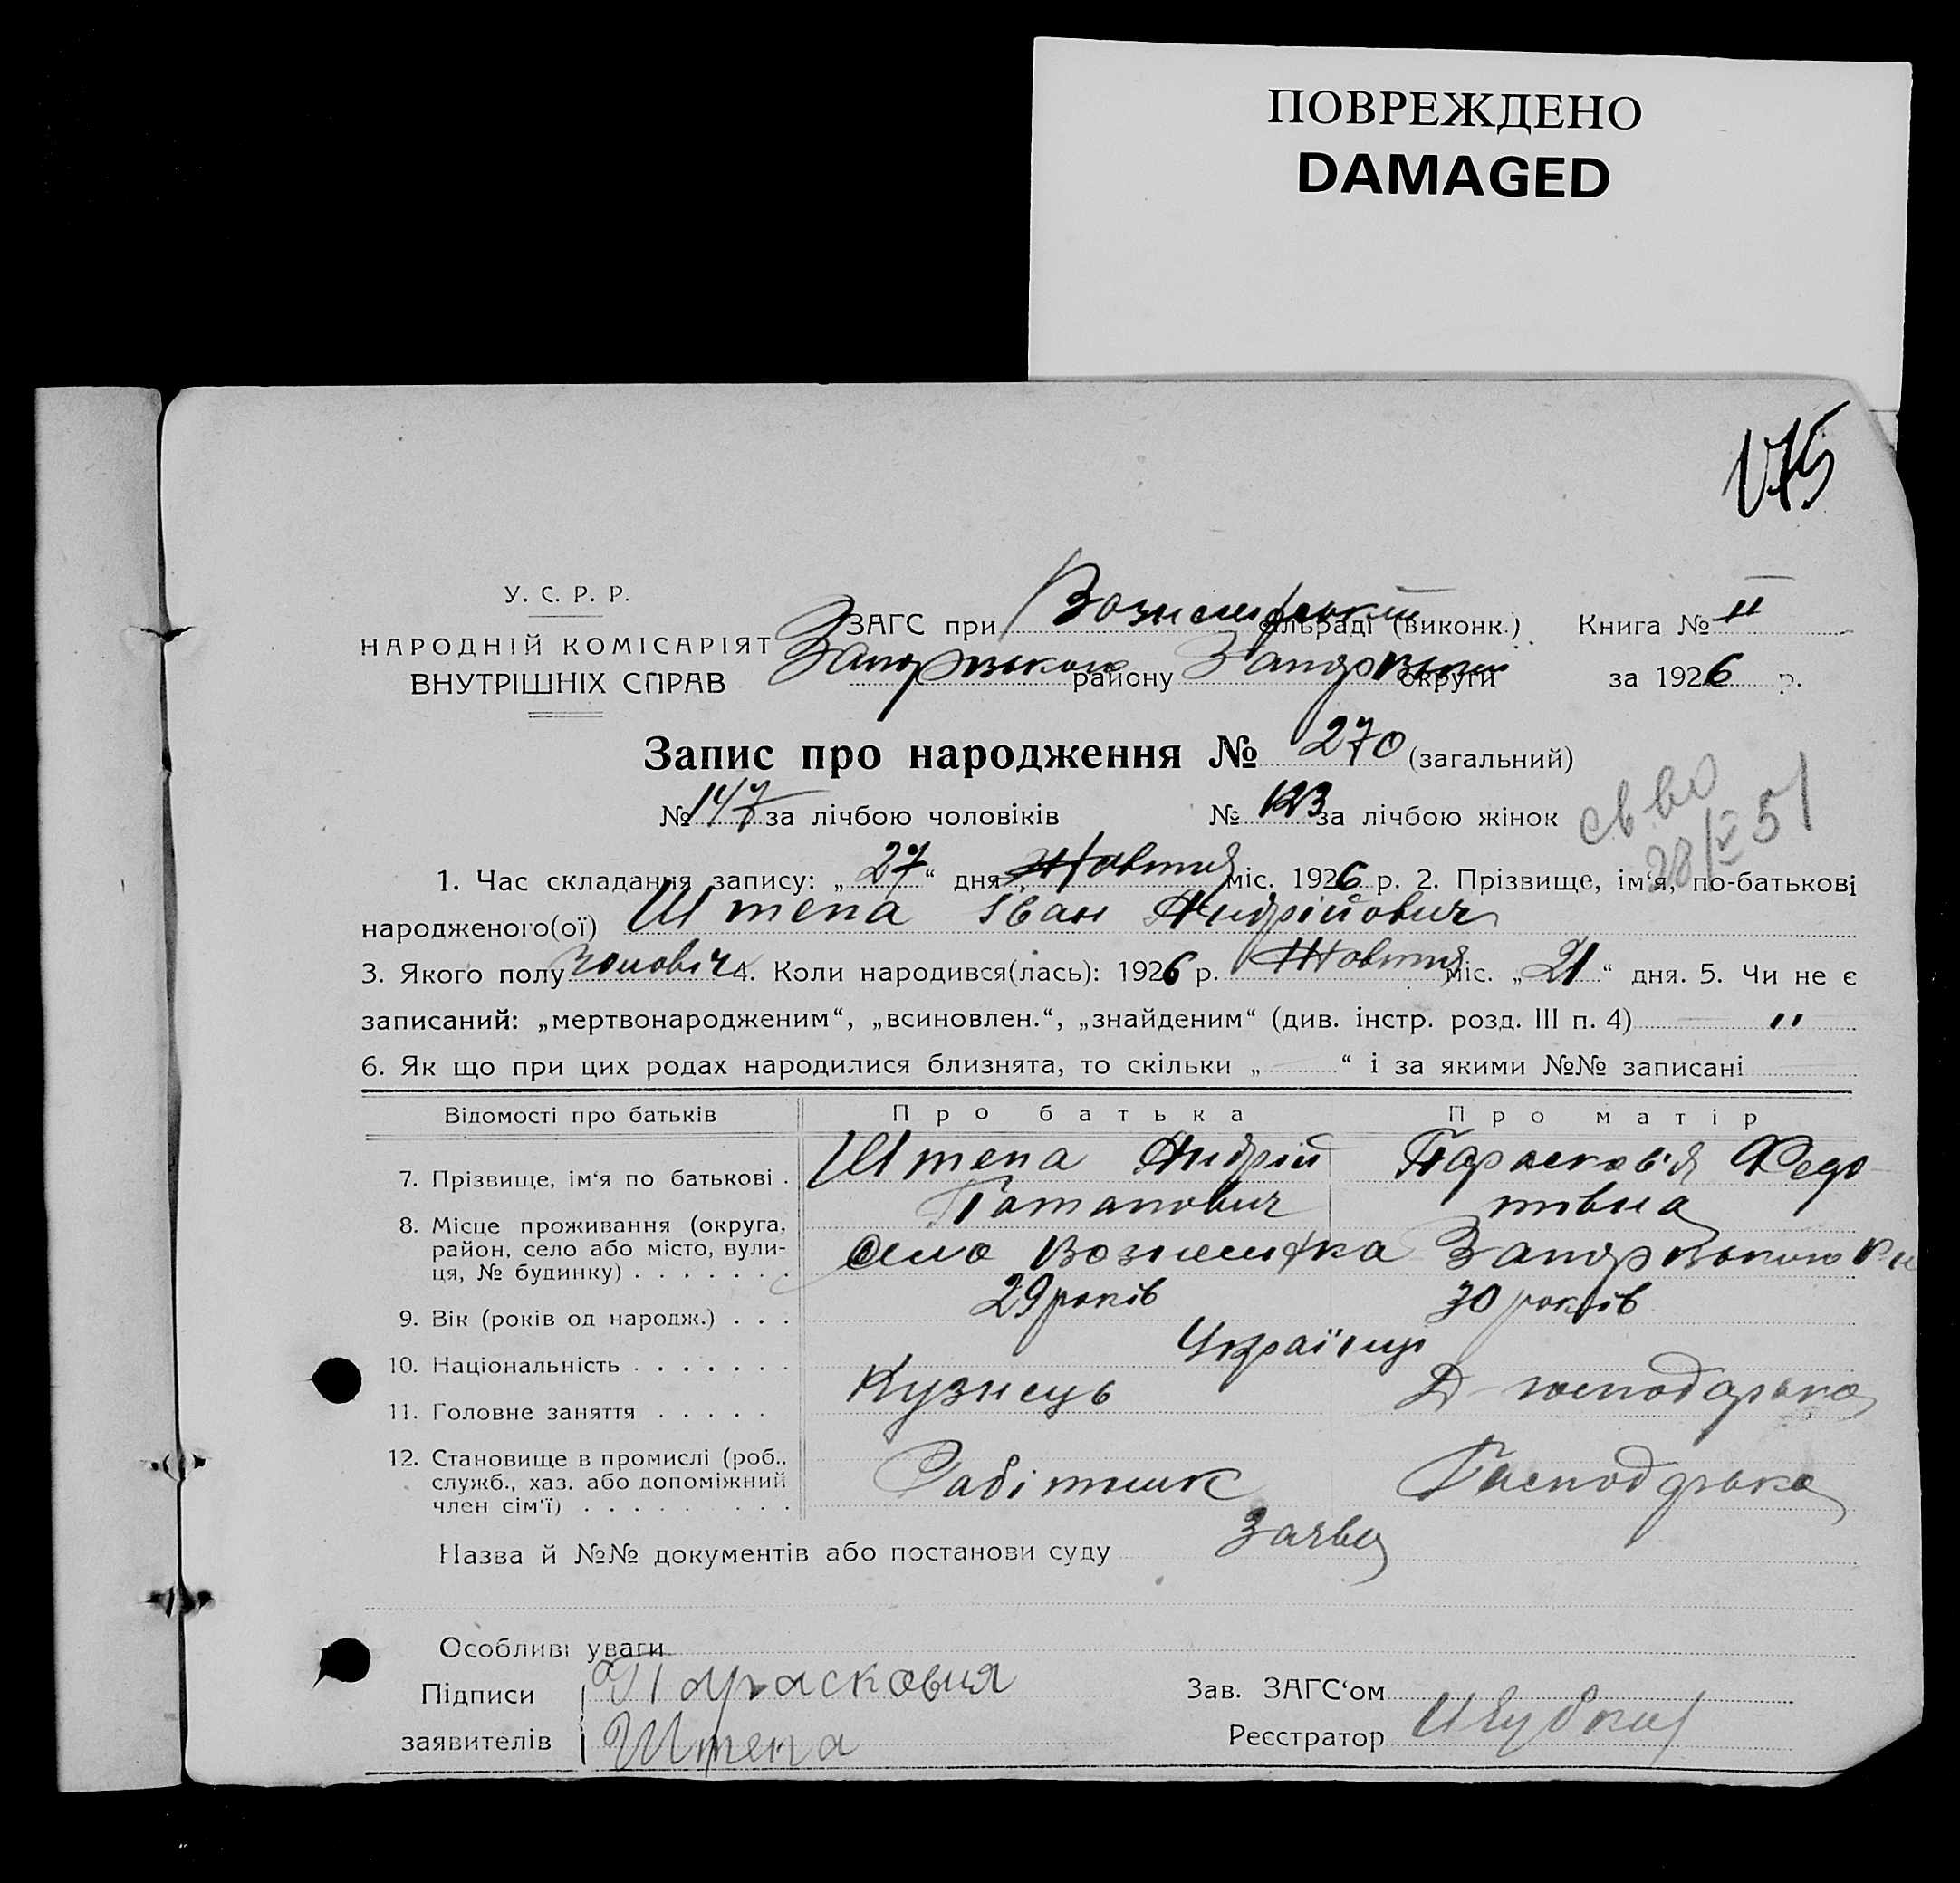 ПОВРЕЖДЕНО
DAMAGED
175
У. С. Р. Р.
НАРОДНІЙ КОМІСАРІЯТ
ВНУТРІШНІХ СПРАВ
ЗАГС при Вознесенській сільраді (виконк.) Книга № II
Запорізького району Запорізької округи за 1926 р.
Запис про народження № 270 (загальний)
№ 147 за лічбою чоловіків № 123 за лічбою жінок
св во
28/V 51
1. Час складання запису: „ 27 “ дня, Жовтня міс. 1926 р. 2. Прізвище, ім‘я, по-батькові
народженого(ої) Штепа Іван Андрійович
3. Якого полу чоловіч 4. Коли народився(лась): 1926 р. Жовтня міс. „ 21 “ дня. 5. Чи не є
записаний: „мертвонародженим“, „всиновлен.“, „знайденим“ (див. інстр. розд. III п. 4) — "
6. Як що при цих родах народилися близнята, то скільки „ — “ і за якими №№ записані —
Відомості про батьків Про батька Про матір
7. Прізвище, ім‘я по батькові . Штепа Андрій Потапович Парасков'я Федо-
тівна
8. Місце проживання (округа,
район, село або місто, вули-
ця, № будинку) . . . . . . . село Вознесенка Запорізького р-н
9. Вік (років од народж.) . . . 29 років 30 років
10. Національність . . . . . . . Українці
11. Головне заняття . . . . . Кузнець Д-господарька
12. Становище в промислі (роб.,
служб., хаз. або допоміжний
член сім‘ї) . . . . . . . . Робітник Господарька
Назва й №№ документів або постанови суду Заява
Особливі уваги
Підписи Парасковия Зав. ЗАГС‘ом
заявителів Штепа Реєстратор